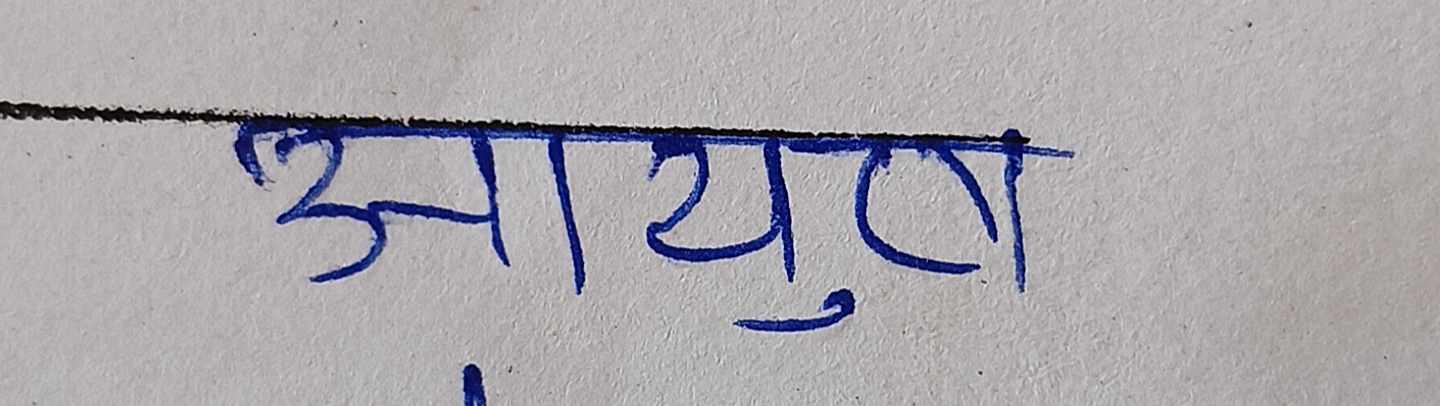 आयुष